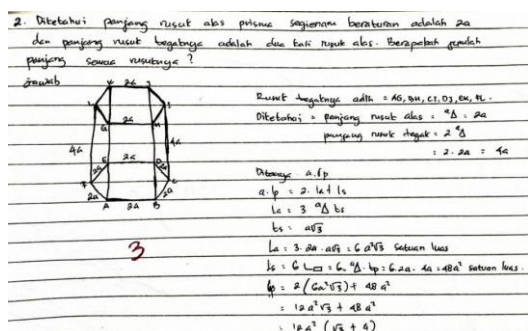 2. Diketahui panjang rusuk alas prisma segienam beraturan adalah 2a
dan panjang rusuk tegaknya adalah dua kali rusuk alas. Berapakah jumlah
panjang semua rusuknya ?
Jawab
2a
2a
4a
4a
2a
2a
2a
2a
2a
A
B
3
Rusuk tegaknya adlh = AG, BH, CI, DJ, EK, FL.
Diketahui = panjang rusuk alas = ᵃΔ = 2a
panjang rusuk tegak = 2 ᵃΔ
= 2. 2a = 4a
Ditanya a. Lp
a. Lp = 2. La + Ls
La = 3 ᵃΔ ts
ts = a√3
La = 3. 2a. a√3 = 6 a²√3 satuan luas
Ls = 6 L▭ = 6. ᵃΔ. tp = 6. 2a. 4a = 48a² satuan luas.
Lp = 2 (6a²√3) + 48 a²
= 12 a² √3 + 48 a²
= 12 a² (√3 + 4)